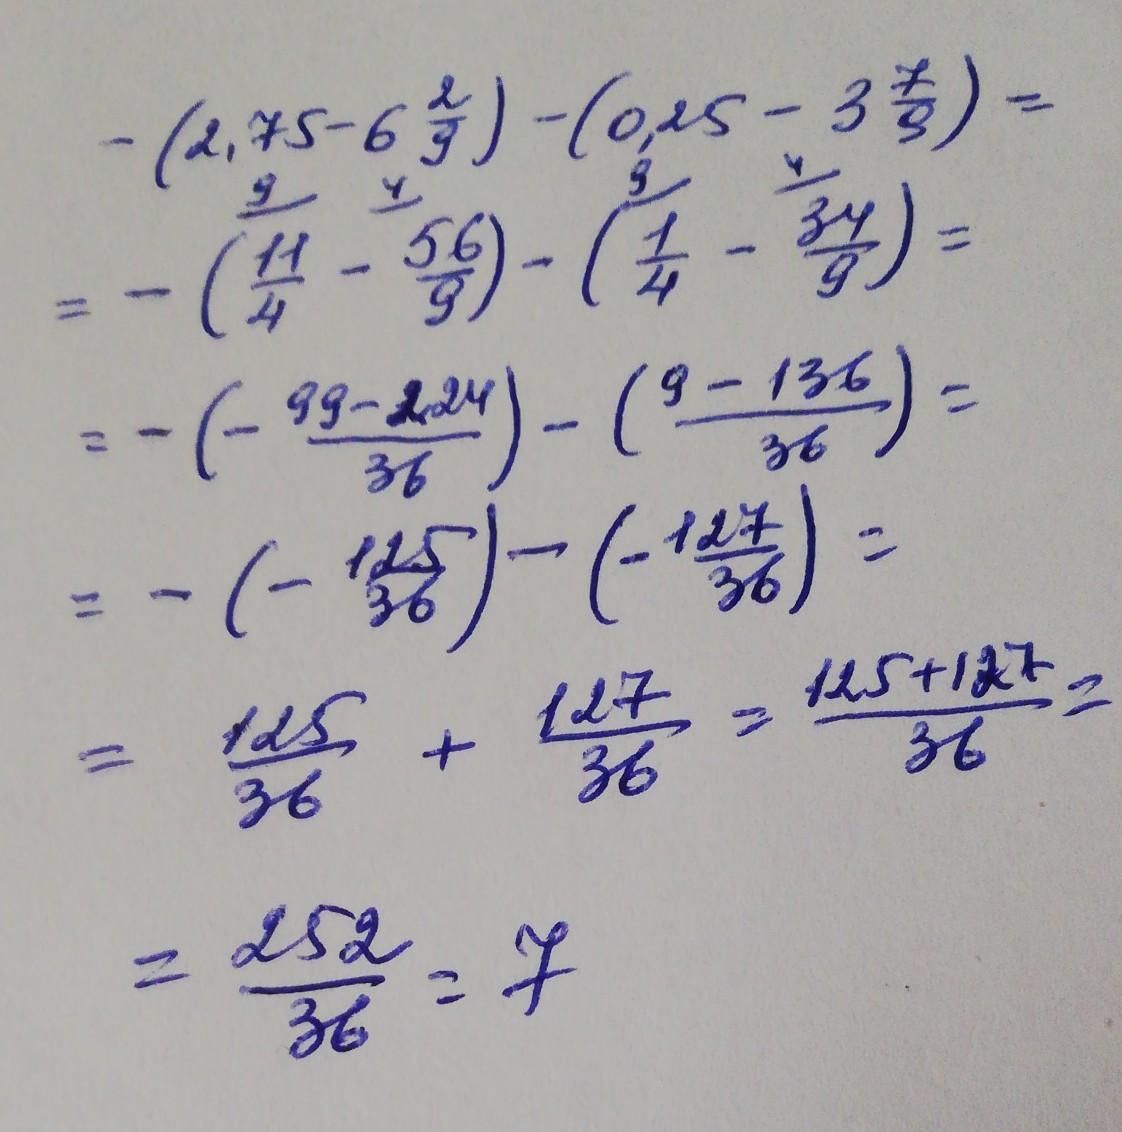 - (2,75 - 6 2/9) - (0,25 - 3 7/9) =
9 4 9 4
= - (11/4 - 56/9) - (1/4 - 34/9) =
= - (- 99 - 224/36) - (9 - 136/36) =
= - (- 125/36) - (- 127/36) =
= 125/36 + 127/36 = 125+127/36 =
= 252/36 = 7